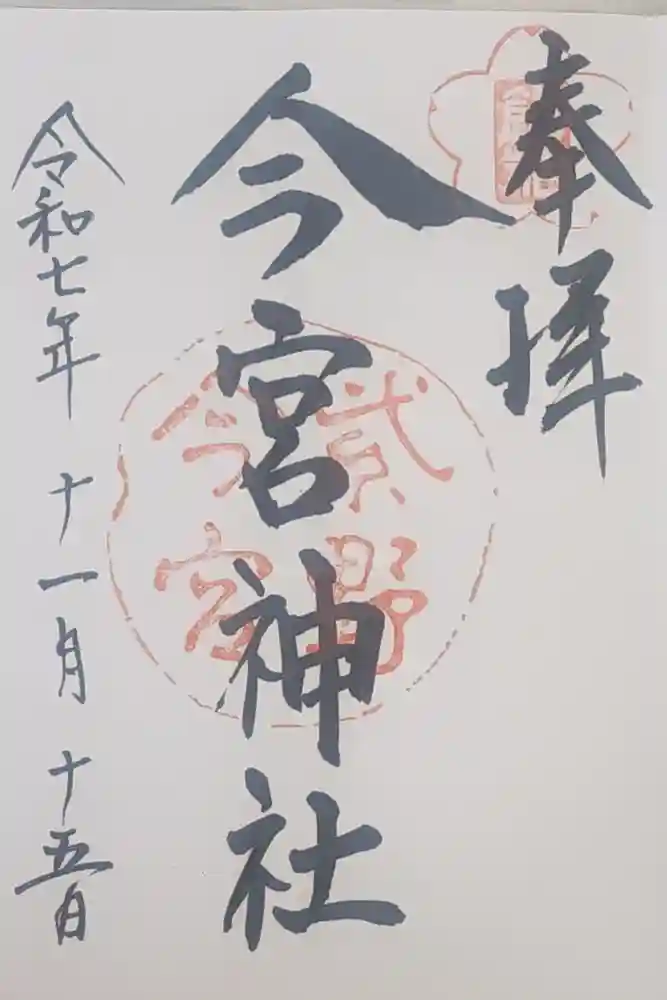 奉拝
今宮神社
紫野
今宮
令和七年 十一月 十五日